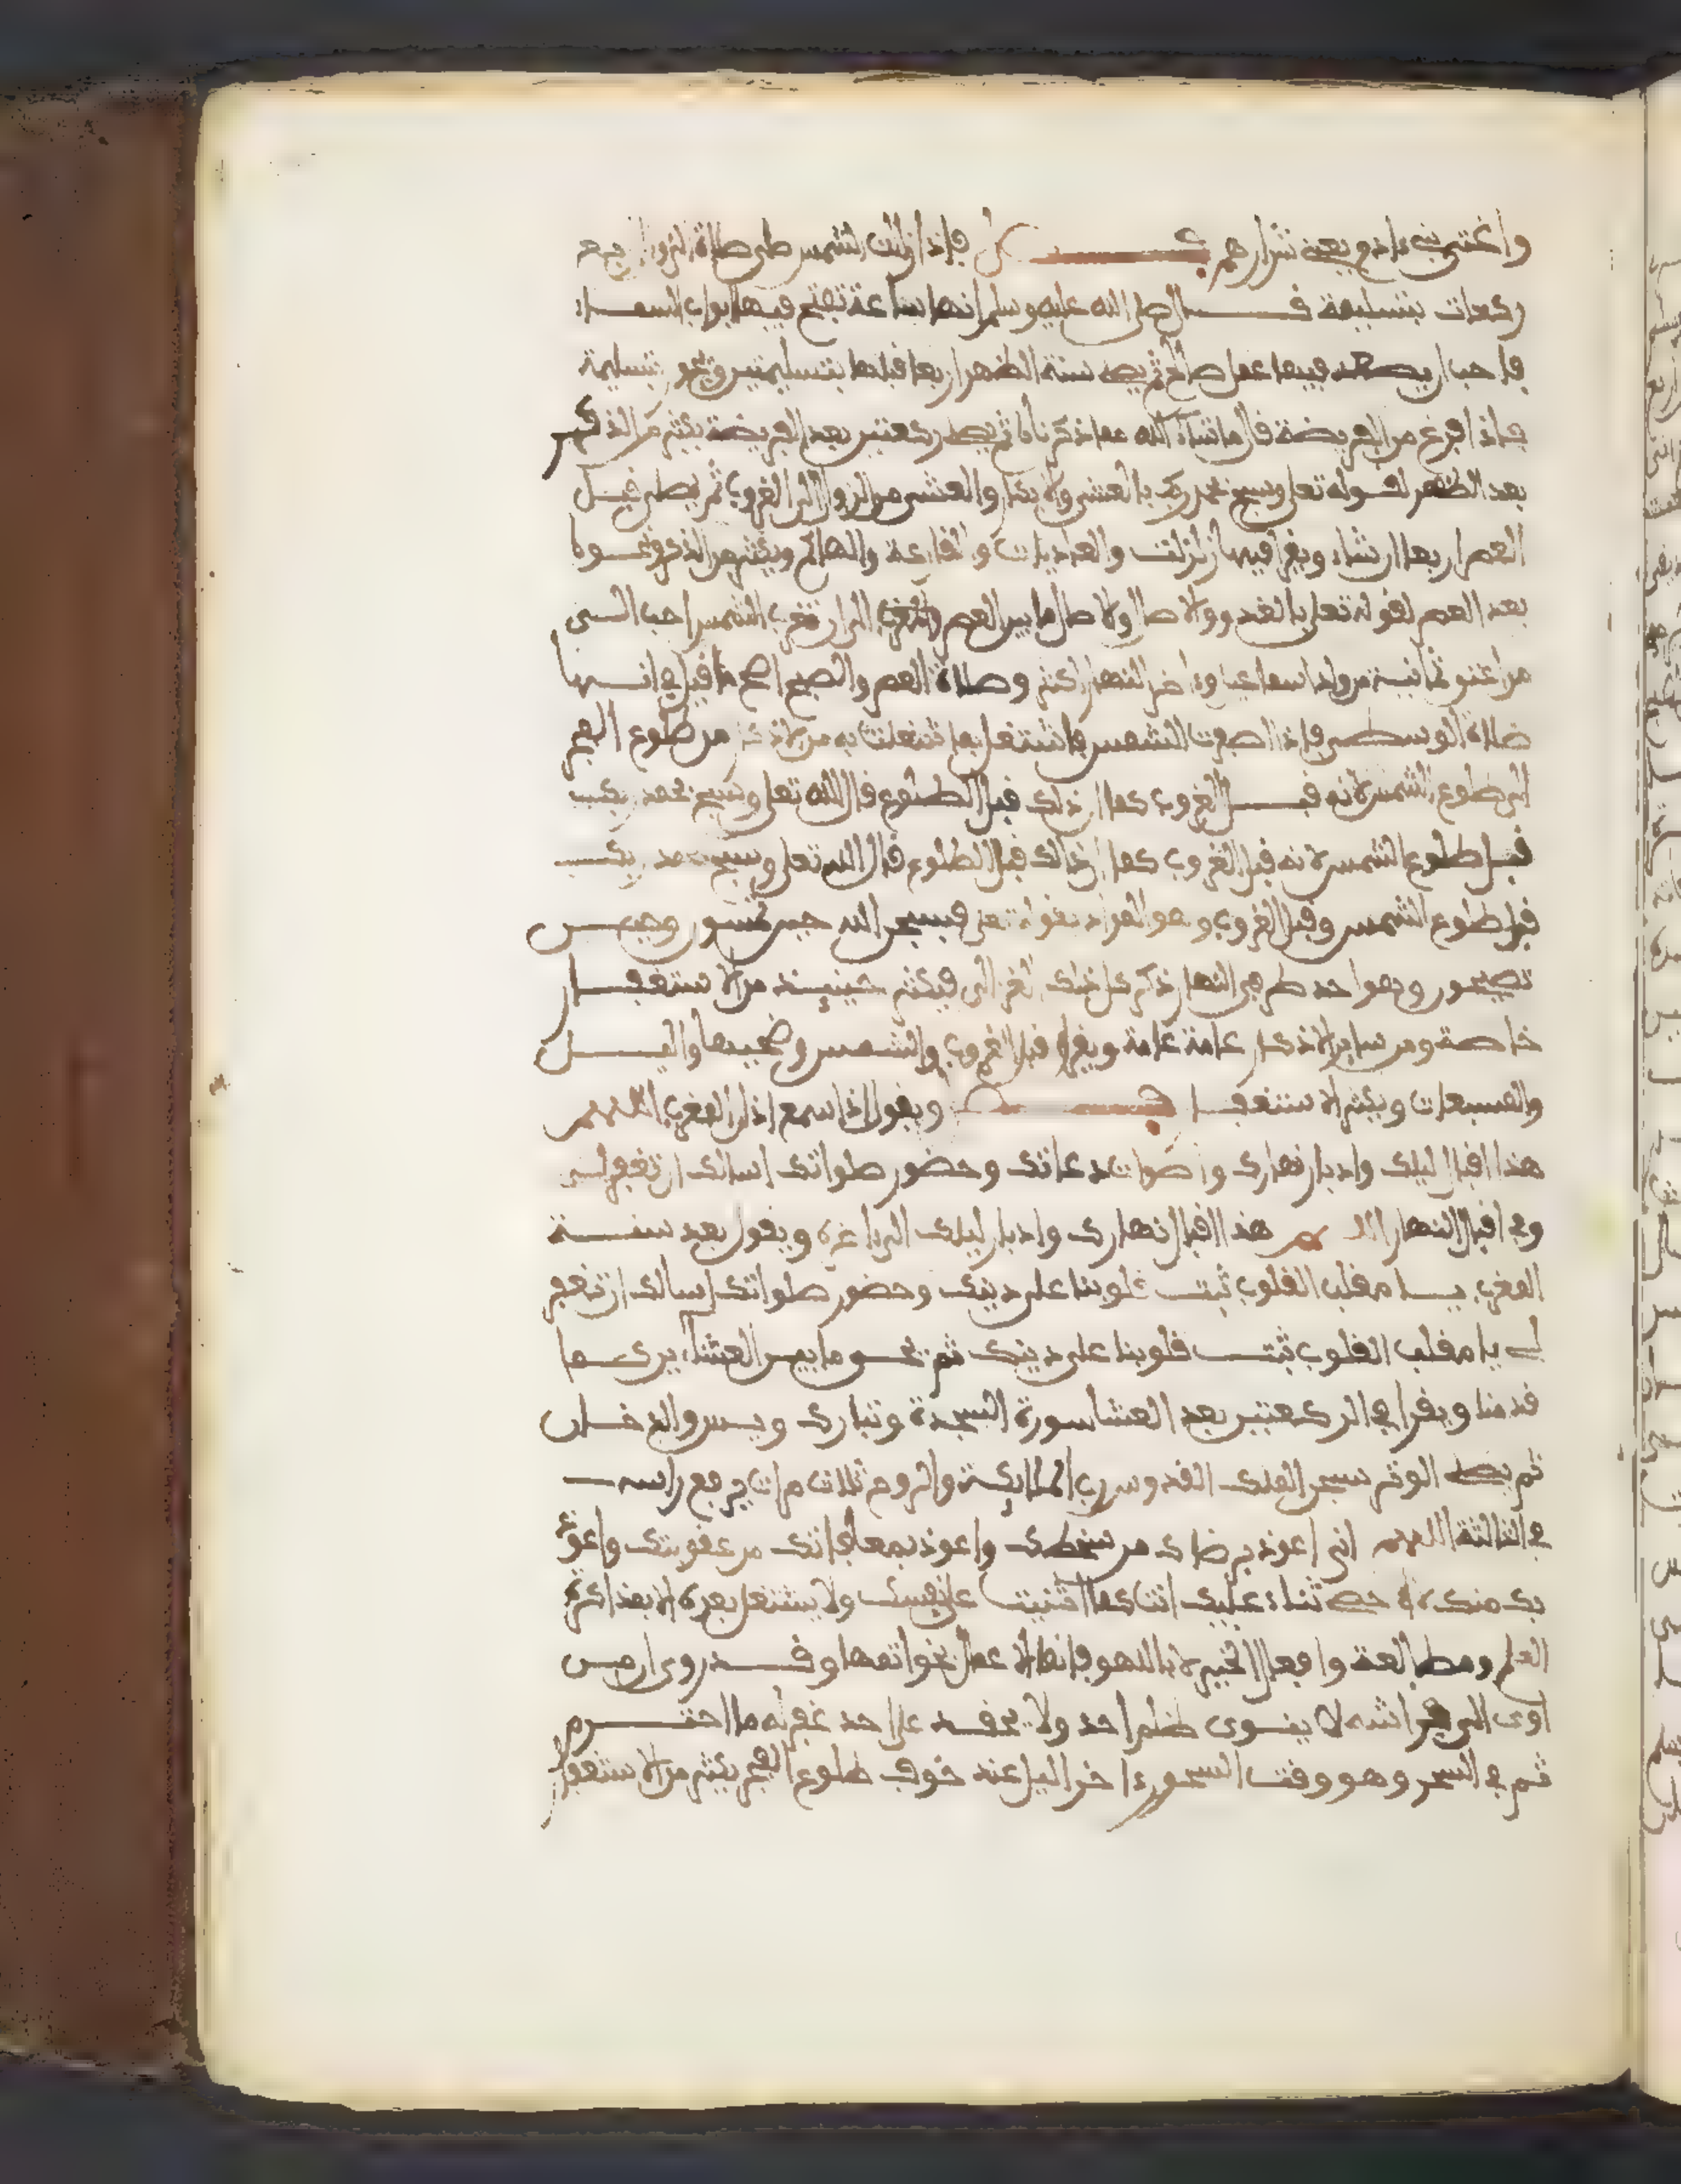 واغتر بي ياذوي يعني شرارهم فصل فإذا زالت الشمس صلى صلاة الزوال اربع
ركعات بتسليمة قال صلى الله عليه وسلم إنها ساعة تفتح فيها أبواب السماء
فاحب ان يصعد فيها عمل صالح ثم يصلي سنة الظهر اربعا قبلها بتسليمتين وتجوز بتسليمة
فإذا فرغ من الفريضة قال ما شاء الله مما ذكرناه ثم يصلي ركعتين بعد الفريضة يكثر من الذكر
بعد الظهر لقوله تعلى وسبح بحمد ربك بالعشي والابكار والعشي من الزوال الى الغروب ثم يصلي قبل
العصر اربعا ان شاء ويقرا فيها زلزلت والعاديات والقارعة والهاكم ويكثر من الذكر ونحوه
بعد العصر لقوله تعلى بالغدو والاصال والاصال ما بين العصر والمغرب الى ان تغرب الشمس احب الي
من اعتق ثمانية من ولد اسماعيل واخر النهار اكثر وصلاة العصر والصبح اصح ما قيل في انها
صلاة الوسطى فإذا اصفرت الشمس فاشتغل بما اشتغلت به من الاذكار من طلوع الفجر
الى طلوع الشمس لانه قبل الغروب كما ان ذلك قبل الطلوع قال الله تعلى وسبح بحمد ربك
قبل طلوع الشمس لانه قبل الغروب كما ان ذالك قبل الطلوع قال الله تعلى وسبح بحمد ربك
قبل طلوع الشمس وقبل الغروب وهو المراد بقوله تعلى فسبحن الله حين تمسون وحين
تصبحون وهو احد طرفي النهار ذكر كل ذلك الغزالي فيكثر حينيذ من الاستغفار
خاصة ومن ساير الاذكار عامة عامة ويقرا قبل الغروب والشمس وضحيها واليل
والمسبعات ويكثر الاستغفار ويقول إذا سمع اذان المغرب اللهم
هذا اقبال ليلك وادبار نهارك واصوات دعاتك وحضور صلواتك اسالك ان تغفر لي
وفي اقبال النهار اللهم هذا اقبال نهارك وادبار ليلك الى اخره ويقول بعد سنة
المغرب يا مقلب القلوب ثبت قلوبنا على دينك وحضور صلواتك اسالك ان تغفر
لي يا مقلب القلوب ثبت قلوبنا على دينك ثم يحيي ما بين العشاءين كما
قدمنا ويقرا في الركعتين بعد العشا سورة السجدة وتبارك ويس والدخان
ثم يصلي الوتر سبحن الملك القدوس رب الملايكة والروح ثلاث مرات يرفع راسه
في الثالثة اللهم اني اعوذ برضاك من سخطك واعوذ بمعافاتك من عقوبتك واعوذ
بك منك لا احصي ثناء عليك انت كما اثنيت على نفسك ولا يشتغل بعده الا بمذاكرة
العلم ومطالعة وافعال الخير لا باللهو فإنما الاعمال بخواتمها وقد روي ان من
اوى الى فراشه لا ينوي ظلم احد ولا يحقد على احد غفر له ما اجترم
ثم في السحر وهو وقت السحور واخر اليل عند خوف طلوع الفجر يكثر من الاستغفار